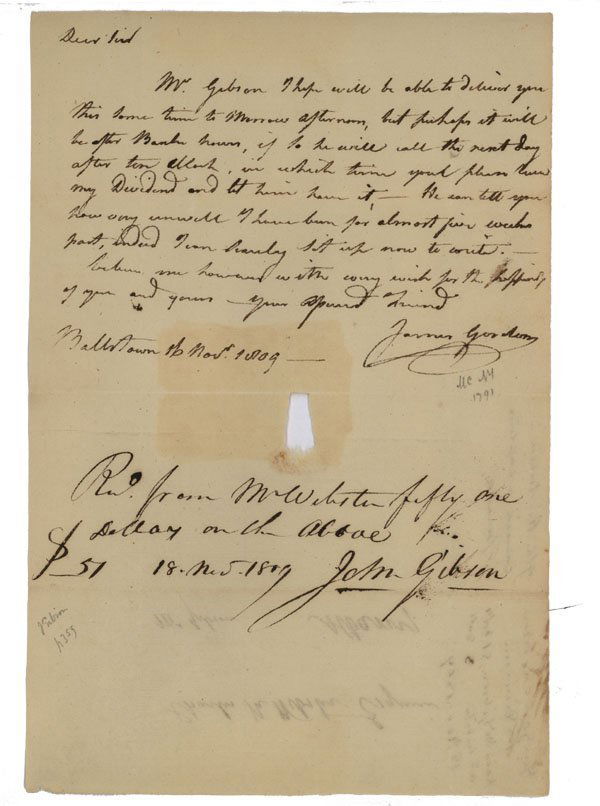 Dear Sir
Mr. Gibson I hope will be able to deliver you
this some time to Morrow afternoon, but perhaps it will
be after Banke hours, if so he will call the next day
after ten Clock, in which time youl please
my Dividend and let him have it — He can tell you
how very unwell I have been for almost five weeks
past, indeed I can Scarcely Sit up now to write. —
believe me however with every wish for the happiness
of you and yours — your Friend
James Gordon
Ballstown 16 Novr. 1809 —
MC NY
1791
Recd. from Mr Webster fifty one
Dollars on the above
$ 51 18. Nov. 1809 John Gibson
Albany
Esquire